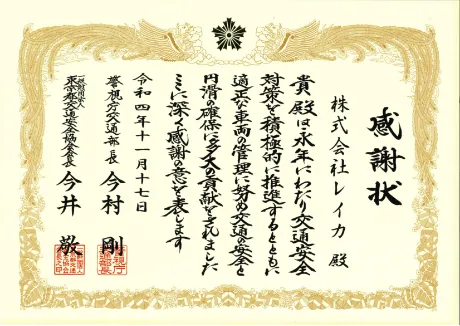 感謝状
株式会社レイカ 殿
貴殿は永年にわたり交通安全
対策を積極的に推進するとともに
適正な車両の管理に努め交通の安全と
円滑の確保に多大の貢献をされました
ここに深く感謝の意を表します
令和四年十一月十七日
警視庁交通部長 今村 剛
一般財団法人
東京都交通安全協会会長 今井 敬